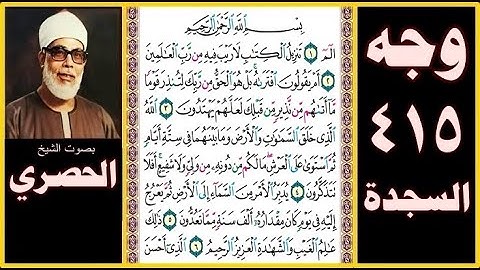 وجه
٤١٥
السجدة
بصوت الشيخ
الحصري
بِسْمِ اللَّهِ الرَّحْمَٰنِ الرَّحِيمِ
الٓمٓ ١ تَنزِيلُ الْكِتَٰبِ لَا رَيْبَ فِيهِ مِن رَّبِّ الْعَٰلَمِينَ
٢ أَمْ يَقُولُونَ افْتَرَىٰهُ بَلْ هُوَ الْحَقُّ مِن رَّبِّكَ لِتُنذِرَ قَوْمًا
مَّآ أَتَىٰهُم مِّن نَّذِيرٍ مِّن قَبْلِكَ لَعَلَّهُمْ يَهْتَدُونَ ٣ اللَّهُ
الَّذِي خَلَقَ السَّمَٰوَٰتِ وَالْأَرْضَ وَمَا بَيْنَهُمَا فِي سِتَّةِ أَيَّامٍ
ثُمَّ اسْتَوَىٰ عَلَى الْعَرْشِ مَا لَكُم مِّن دُونِهِ مِن وَلِيٍّ وَلَا شَفِيعٍ أَفَلَا
تَتَذَكَّرُونَ ٤ يُدَبِّرُ الْأَمْرَ مِنَ السَّمَآءِ إِلَى الْأَرْضِ ثُمَّ يَعْرُجُ
إِلَيْهِ فِي يَوْمٍ كَانَ مِقْدَارُهُ أَلْفَ سَنَةٍ مِّمَّا تَعُدُّونَ ٥ ذَٰلِكَ
عَٰلِمُ الْغَيْبِ وَالشَّهَٰدَةِ الْعَزِيزُ الرَّحِيمُ ٦ الَّذِي أَحْسَنَ